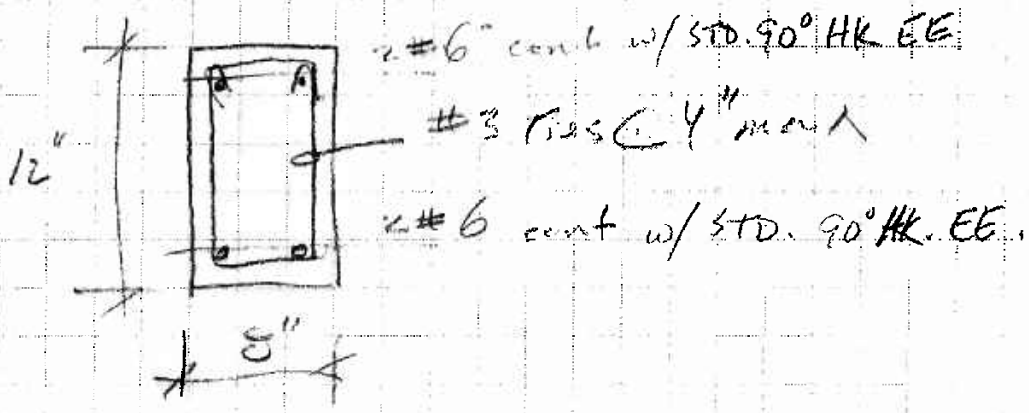 2 #6 cont w/ STD. 90° HK EE.
#3 Ties @ 4" max
12"
2 #6 cont w/ STD. 90° HK. EE.
8"